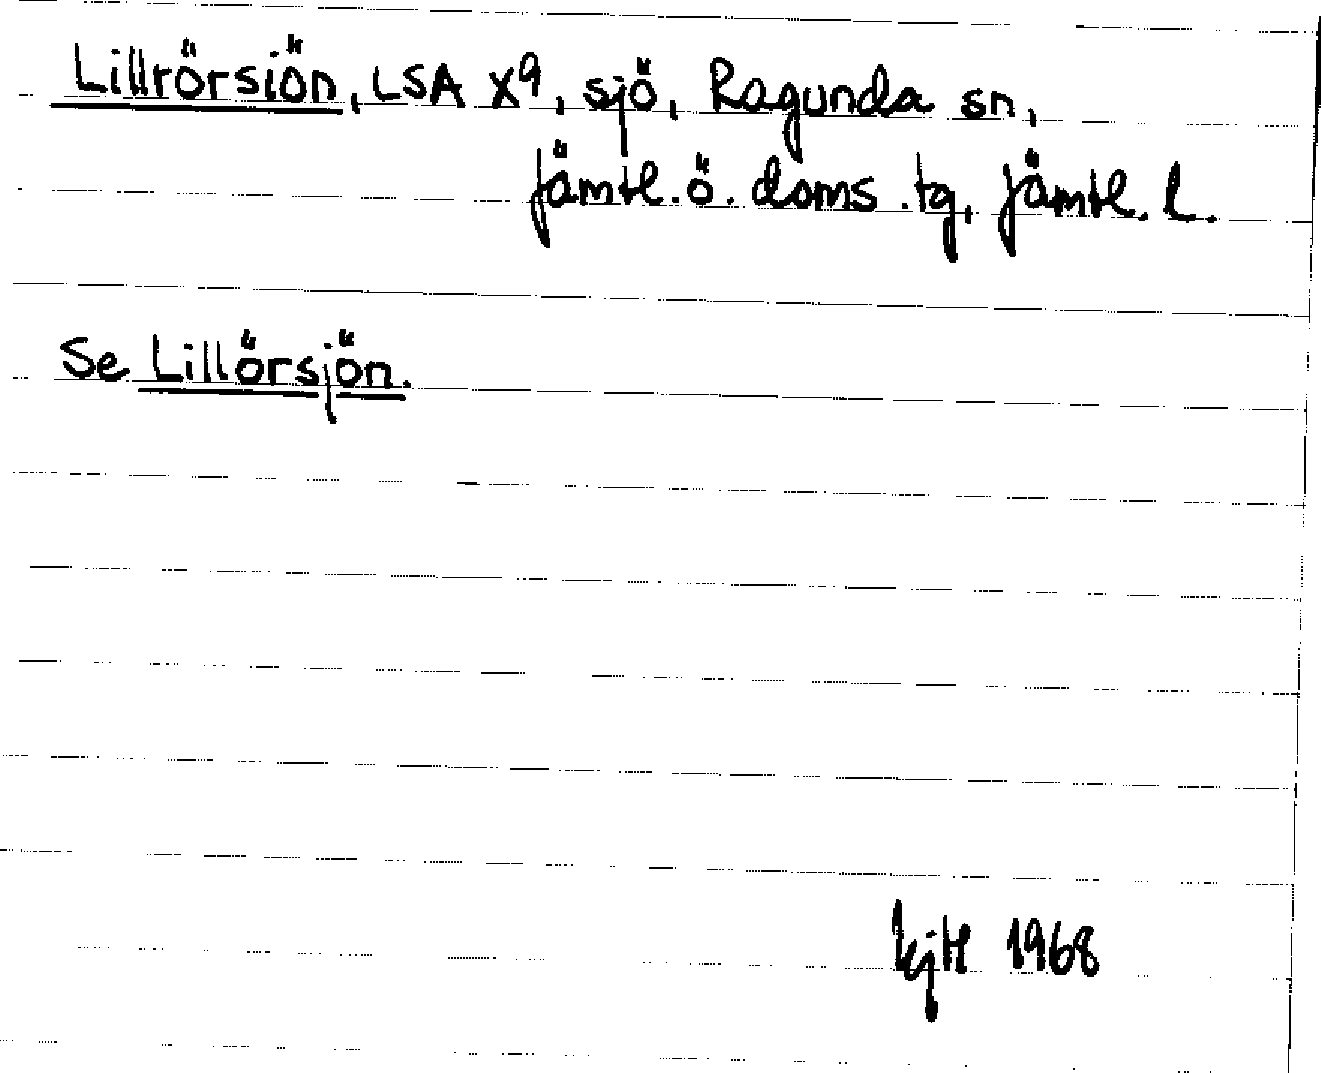 Lillrörsiön, LSA X9, sjö, Ragunda sn,
Jämtl. ö. doms. tg, Jämtl. l.
Se Lillörsjön.
1968